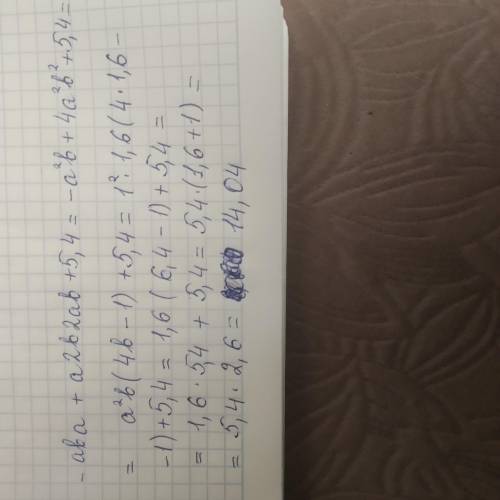 - aba + a2b2ab + 5,4 = -a²b + 4a²b² + 5,4 =
= a²b(4b - 1) + 5,4 = 1² · 1,6 (4 · 1,6 -
-1) + 5,4 = 1,6 (6,4 - 1) + 5,4 =
= 1,6 · 5,4 + 5,4 = 5,4 · (1,6 + 1) =
= 5,4 · 2,6 = 14,04